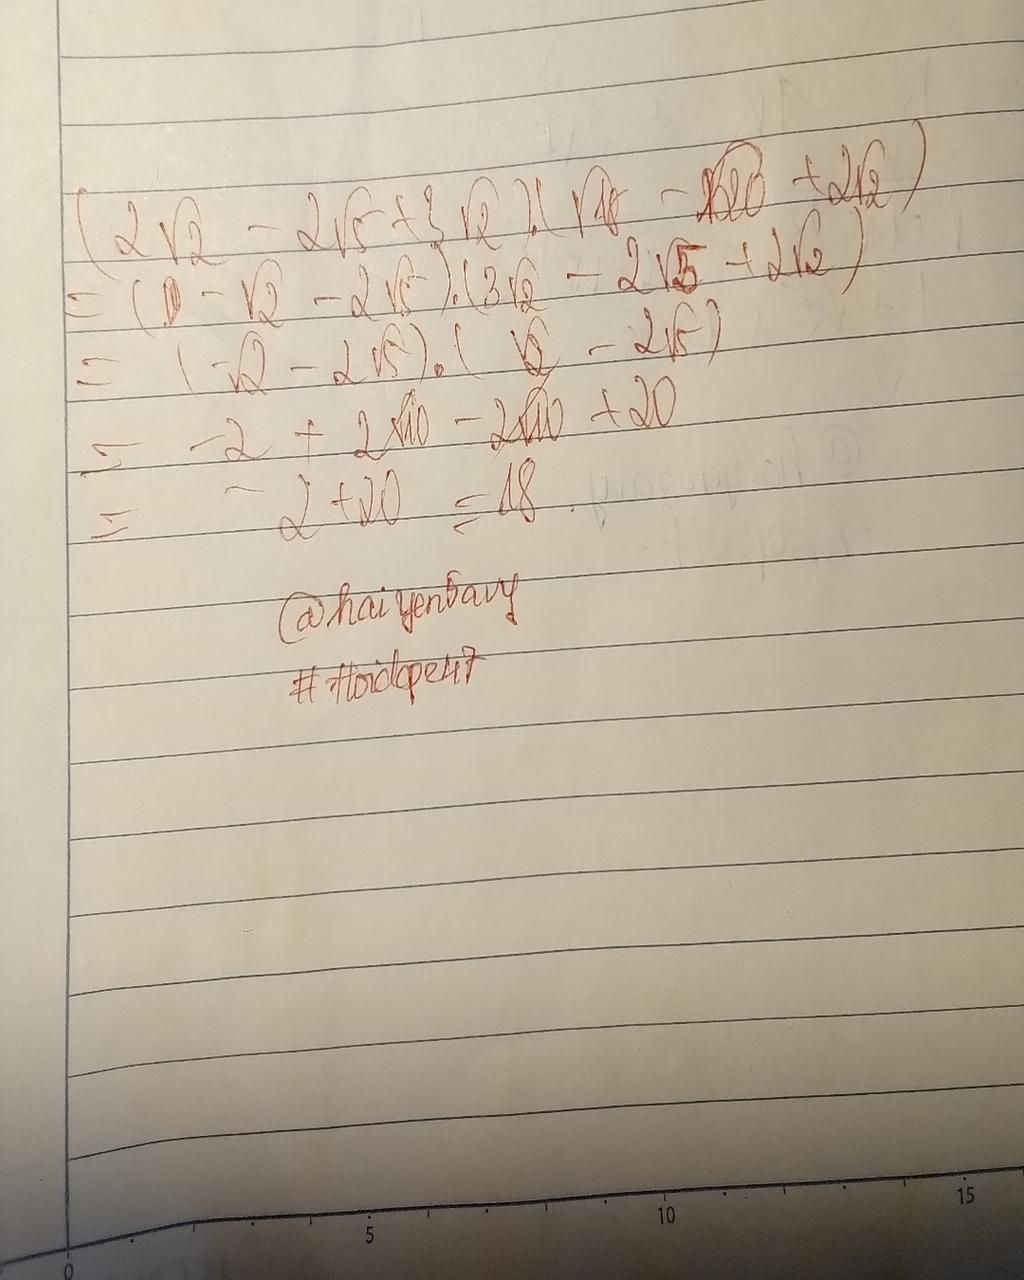 (2√2 - 2√5 + 3√2).(√18 - √20 + 2√2)
= ( - √2 - 2√5).(3√2 - 2√5 + 2√2)
= (-√2 - 2√5).( √2 - 2√5)
= -2 + 2√10 - 2√10 + 20
= - 2 + 20 = 18.
@haiyen5avy
0 5 10 15